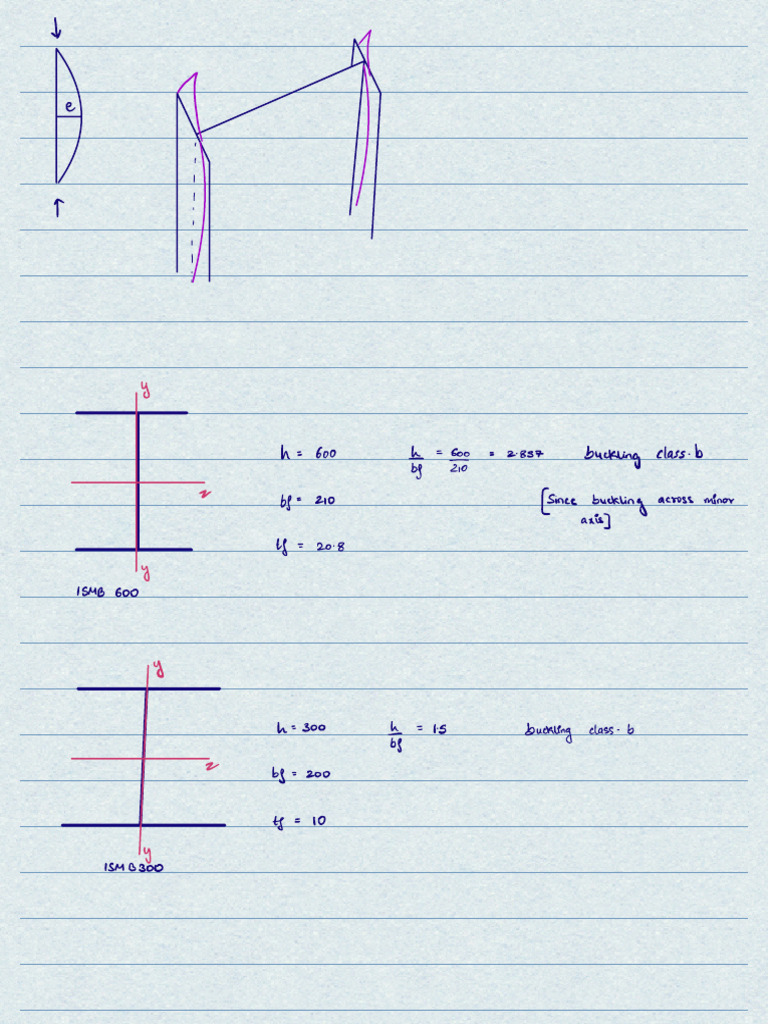 e
y
h = 600 h/bf = 600/210 = 2.857 buckling class-b
z
bf = 210 [Since buckling across minor
axis]
tf = 20.8
y
ISMB 600
y
h = 300 h/bf = 1.5 buckling class-b
z
bf = 200
tf = 10
y
ISMB 300